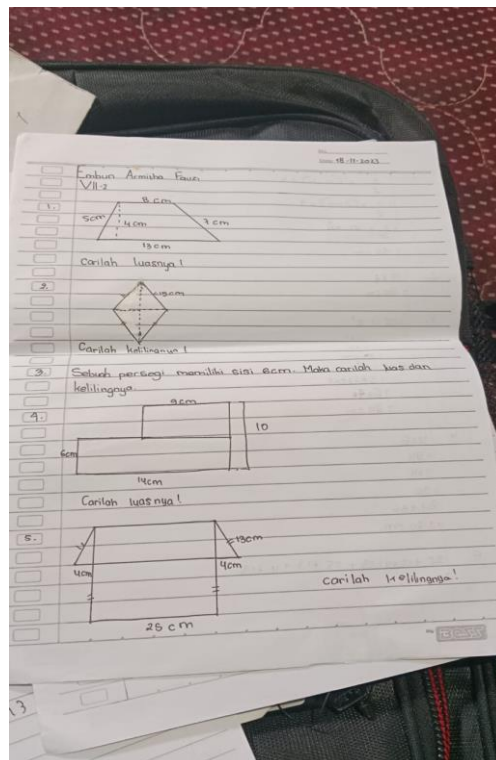 18-11-2023
Embun Armitha Fauzi
VII.2
1.
8 cm
5cm
4cm
7 cm
13cm
Carilah luasnya!
2.
Carilah kelilingnya!
3. Sebuah persegi memiliki sisi 8cm. Maka carilah luas dan
kelilingnya.
4.
9cm
10
6cm
14cm
Carilah luasnya!
5.
13cm
4cm
4cm
Carilah kelilingnya!
25 cm
13